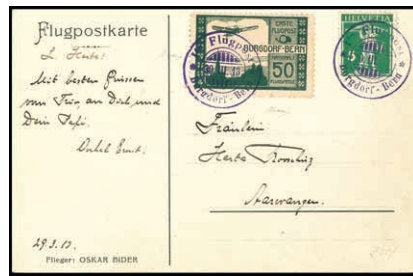 Flugpostkarte
L. Herta!
Mit besten Grüssen
von Trio, an Dich, und
Dein Papi.
Onkel Ernst.
29.3.13.
Flieger: OSKAR BIDER
ERSTE
FLUGPOST
BURGDORF-BERN
NATIONALE
FLUGSPENDE
50
Flugpost
Burgdorf - Bern
HELVETIA
Flugpost
Burgdorf - Bern
Fräulein
Herta
Aarwangen.